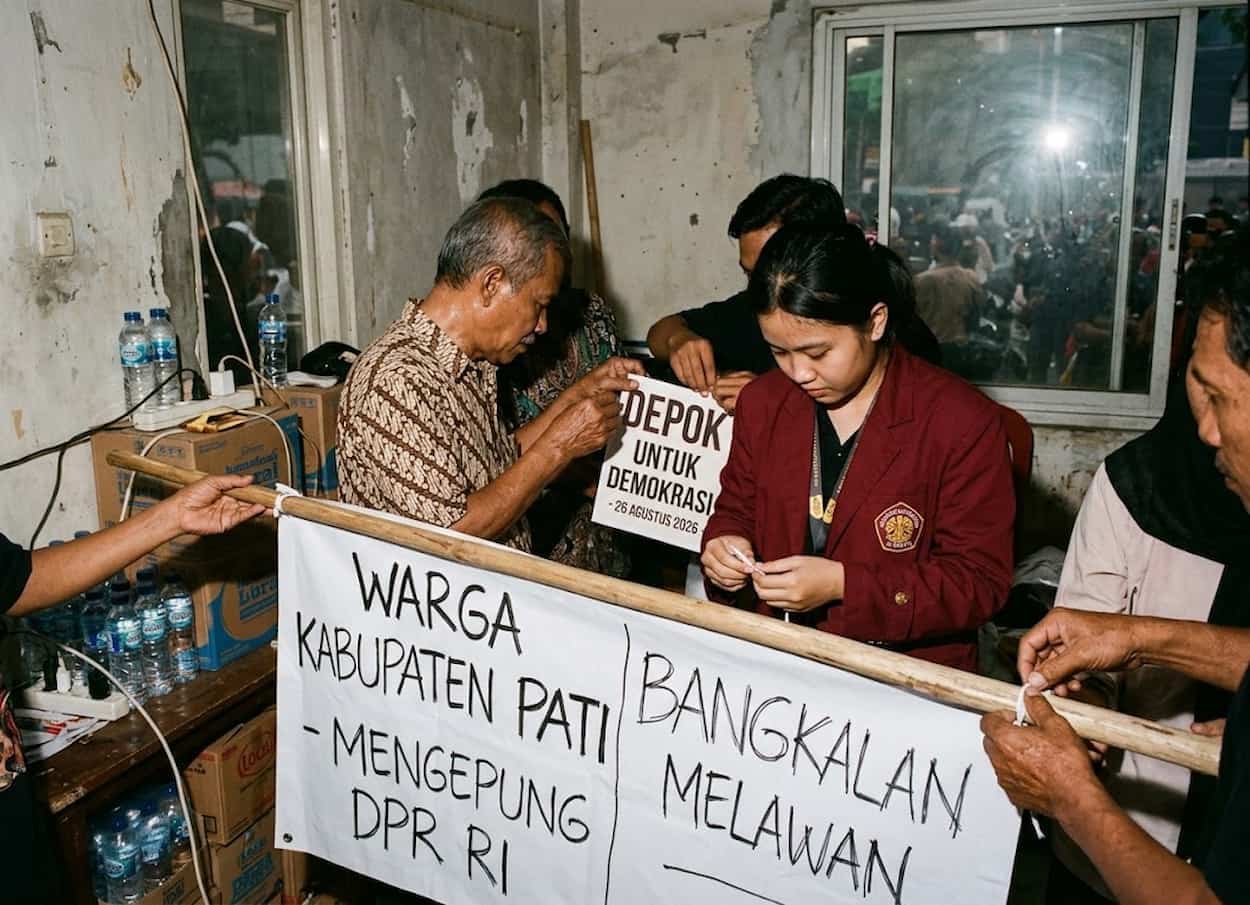 DEPOK
UNTUK
DEMOKRASI
- 26 AGUSTUS 2026 -
WARGA
KABUPATEN PATI
- MENGEPUNG
DPR RI
BANGKALAN
MELAWAN